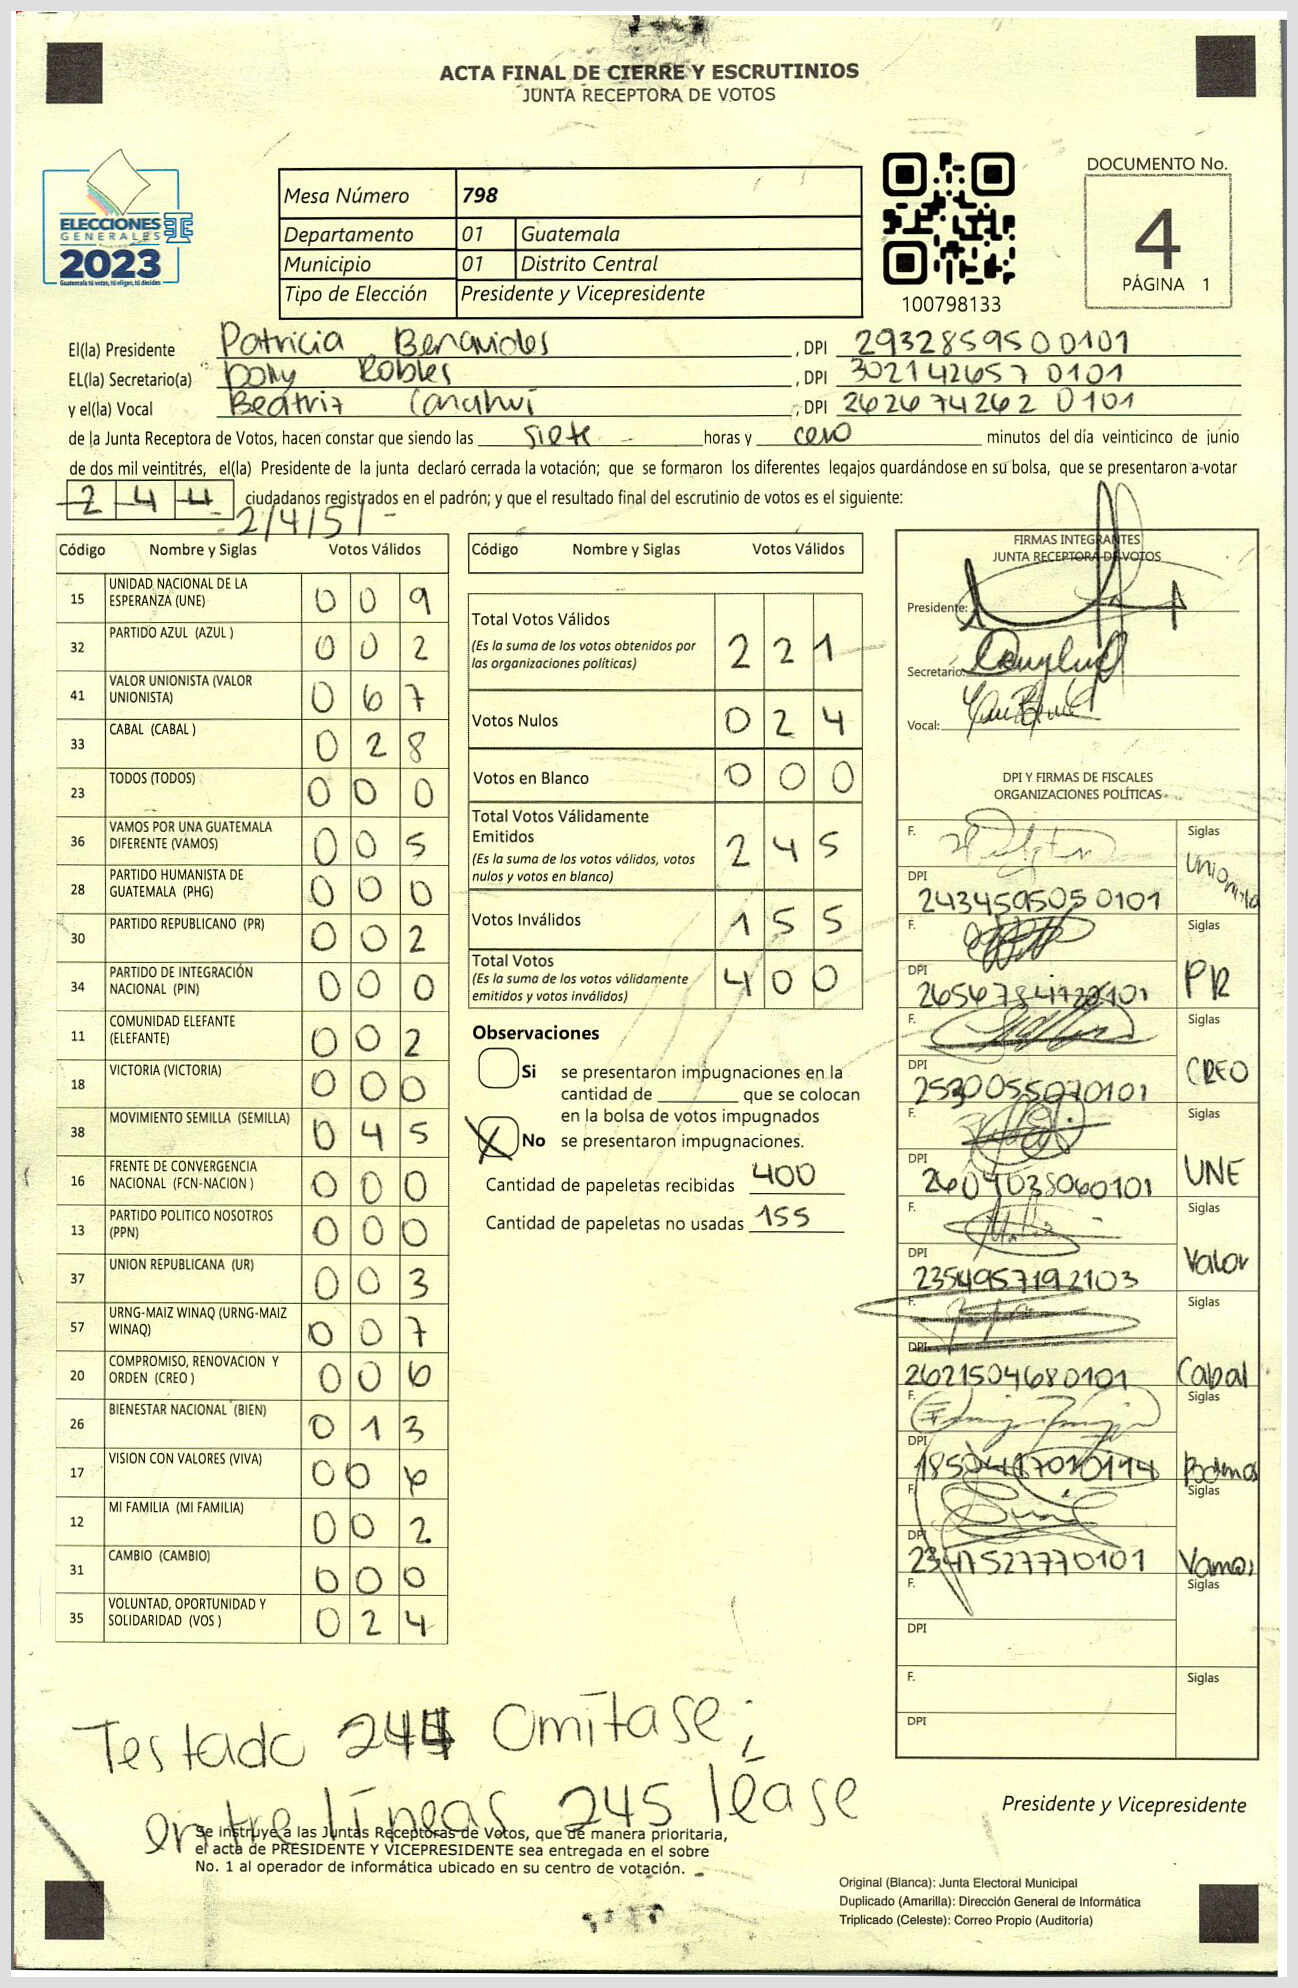 ACTA FINAL DE CIERRE Y ESCRUTINIOS
JUNTA RECEPTORA DE VOTOS
ELECCIONES
GENERALES
2023
Guatemala tú votas, tú eliges, tú decides
Mesa Número 798
Departamento 01 Guatemala
Municipio 01 Distrito Central
Tipo de Elección Presidente y Vicepresidente
100798133
DOCUMENTO No.
4
PÁGINA 1
El(la) Presidente Patricia Benavides , DPI 2932859500101
EL(la) Secretario(a) Dolly Robles , DPI 3021426570101
y el(la) Vocal Beatriz Canahui , DPI 2626742620101
de la Junta Receptora de Votos, hacen constar que siendo las siete horas y cero minutos del día veinticinco de junio
de dos mil veintitrés, el(la) Presidente de la junta declaró cerrada la votación; que se formaron los diferentes legajos guardándose en su bolsa, que se presentaron a votar
244 ciudadanos registrados en el padrón; y que el resultado final del escrutinio de votos es el siguiente:
2/4/5/-
Código Nombre y Siglas Votos Válidos
15 UNIDAD NACIONAL DE LA ESPERANZA (UNE) 009
32 PARTIDO AZUL (AZUL ) 002
41 VALOR UNIONISTA (VALOR UNIONISTA) 067
33 CABAL (CABAL ) 028
23 TODOS (TODOS) 000
36 VAMOS POR UNA GUATEMALA DIFERENTE (VAMOS) 005
28 PARTIDO HUMANISTA DE GUATEMALA (PHG) 000
30 PARTIDO REPUBLICANO (PR) 002
34 PARTIDO DE INTEGRACIÓN NACIONAL (PIN) 000
11 COMUNIDAD ELEFANTE (ELEFANTE) 002
18 VICTORIA (VICTORIA) 000
38 MOVIMIENTO SEMILLA (SEMILLA) 045
16 FRENTE DE CONVERGENCIA NACIONAL (FCN-NACION ) 000
13 PARTIDO POLITICO NOSOTROS (PPN) 000
37 UNION REPUBLICANA (UR) 003
57 URNG-MAIZ WINAQ (URNG-MAIZ WINAQ) 007
20 COMPROMISO, RENOVACION Y ORDEN (CREO ) 006
26 BIENESTAR NACIONAL (BIEN) 013
17 VISION CON VALORES (VIVA) 006
12 MI FAMILIA (MI FAMILIA) 002
31 CAMBIO (CAMBIO) 000
35 VOLUNTAD, OPORTUNIDAD Y SOLIDARIDAD (VOS ) 024
Código Nombre y Siglas Votos Válidos
Total Votos Válidos 221
(Es la suma de los votos obtenidos por
las organizaciones políticas)
Votos Nulos 024
Votos en Blanco 000
Total Votos Válidamente
Emitidos 245
(Es la suma de los votos válidos, votos
nulos y votos en blanco)
Votos Inválidos 155
Total Votos 400
(Es la suma de los votos válidamente
emitidos y votos inválidos)
Observaciones
Si se presentaron impugnaciones en la
cantidad de ________ que se colocan
en la bolsa de votos impugnados
X No se presentaron impugnaciones.
Cantidad de papeletas recibidas 400
Cantidad de papeletas no usadas 155
FIRMAS INTEGRANTES
JUNTA RECEPTORA DE VOTOS
Presidente:
Secretario:
Vocal:
DPI Y FIRMAS DE FISCALES
ORGANIZACIONES POLÍTICAS
F. Siglas Unionista
DPI 2434595050101
F. Siglas PR
DPI
F. Siglas CREO
DPI 2530055070101
F. Siglas UNE
DPI 2604038060101
F. Siglas Valor
DPI 2354957192103
F. Siglas Cabal
DPI 2621504680101
F. Siglas Podemos
DPI
F. Siglas Vamos
DPI 2347527770101
F. Siglas
DPI
F. Siglas
DPI
Testado 244 Omítase;
entre líneas 245 léase
Presidente y Vicepresidente
Se instruye a las Juntas Receptoras de Votos, que de manera prioritaria,
el acta de PRESIDENTE Y VICEPRESIDENTE sea entregada en el sobre
No. 1 al operador de informática ubicado en su centro de votación.
Original (Blanca): Junta Electoral Municipal
Duplicado (Amarilla): Dirección General de Informática
Triplicado (Celeste): Correo Propio (Auditoría)